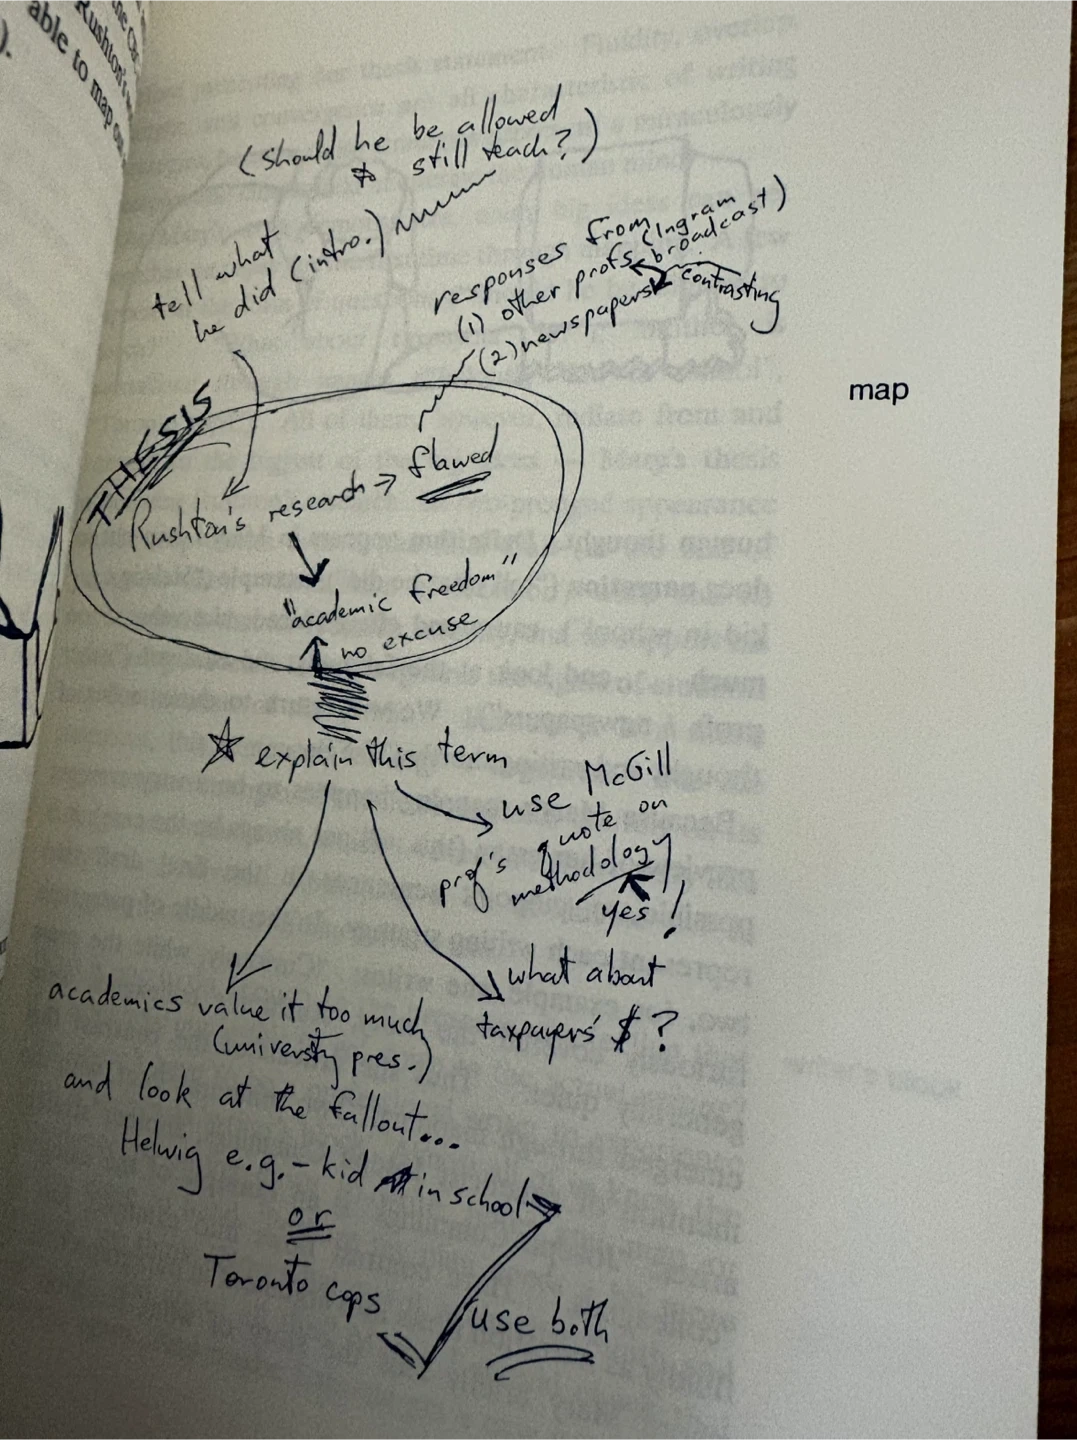 able to map on
Rushton's
(should he be allowed
to still teach?)
tell what
he did (intro.)
responses from
(1) other profs (Ingram
broadcast)
(2) newspapers
contrasting
map
THESIS
Rushton's research → flawed
"academic freedom"
no excuse
☆ explain this term
use McGill
prof's quote on
methodology
yes!
what about
taxpayers' $?
academics value it too much
(university pres.)
and look at the fallout...
Helwig e.g. - kid in school
or
Toronto cops
use both